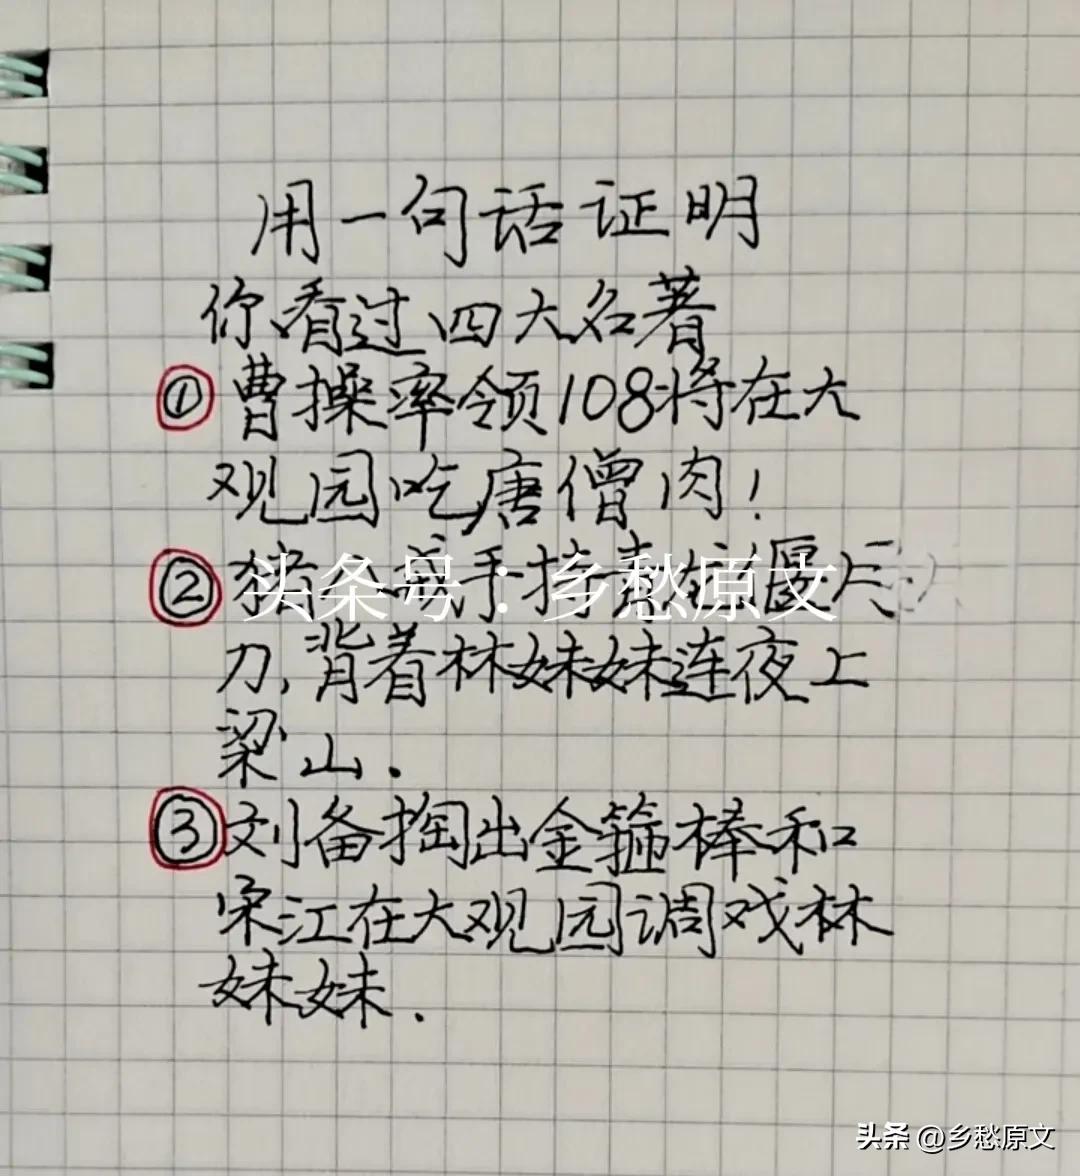 用一句话证明
你看过四大名著
①曹操率领108将在大
观园吃唐僧肉！
②猪八戒手持青龙偃月
头条号：乡愁原文
刀，背着林妹妹连夜上
梁山．
③刘备掏出金箍棒和
宋江在大观园调戏林
妹妹．
头条 @乡愁原文